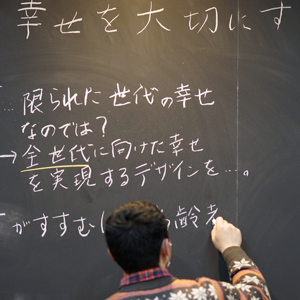 幸せを大切にす
… 限られた世代の幸せ
なのでは？
→ 全世代に向けた幸せ
を実現するデザインを…。
がすすむ 齢者